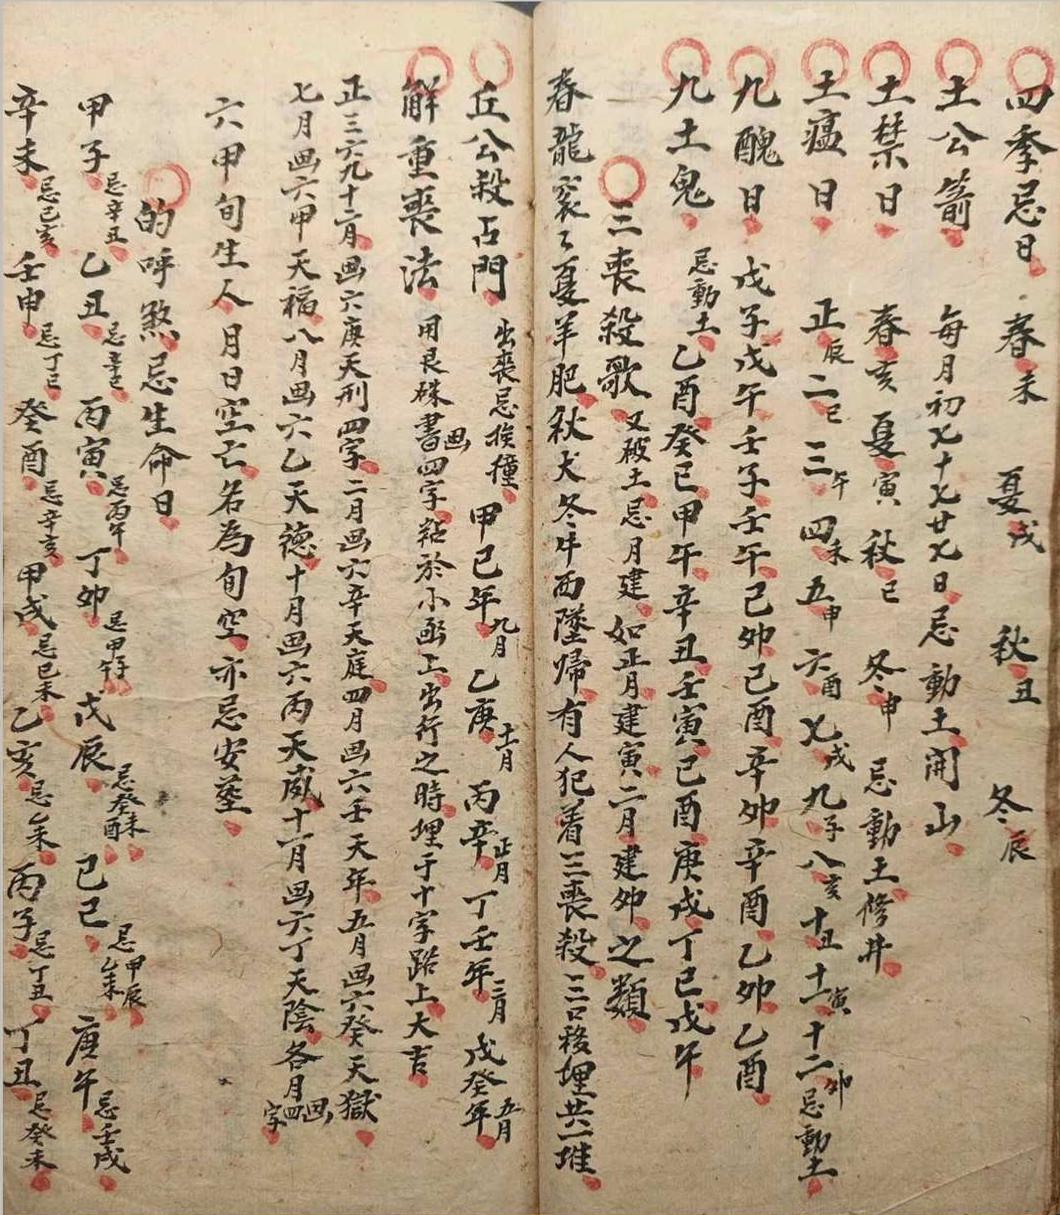 四季忌日 春未 夏戌 秋丑 冬辰
土公箭 每月初七十七廿七日忌動土開山
土禁日 春亥夏寅秋巳冬申忌動土修井
土瘟日 正辰二巳三午四未五申六酉七戌九子八亥十丑十一寅十二卯忌動土
九醜日 戊子戊午壬子壬午己卯己酉辛卯辛酉乙卯乙酉
九土鬼 忌動土 乙酉癸巳甲午辛丑壬寅己酉庚戌丁巳戊午
三喪殺歌 又被土忌月建如正月建寅二月建卯之類
春龍夏羊肥秋犬冬牛西墜歸有人犯着三喪殺三口移埋共一堆
丘公殺占門 出喪忌挨撞 甲己年九月乙庚十一月丙辛正月丁壬年三月戊癸年五月
解重喪法 用艮硃書画四字粘於小函上出行之時埋于十字路上大吉
正三六九十二月画六庚天刑四字二月画六辛天庭四月画六壬天年五月画六癸天獄
七月画六甲天福八月画六乙天德十月画六丙天威十一月画六丁天陰各月画四字
六甲旬生人月日空亡名為旬空亦忌安塟
的呼煞忌生命日
甲子忌辛丑 乙丑忌辛巳 丙寅忌丙午 丁卯忌甲子 戊辰忌癸未癸酉 己巳忌甲辰乙未 庚午忌壬戌
辛未忌己亥 壬申忌丁巳 癸酉忌辛亥 甲戌忌己未 乙亥忌乙未 丙子忌丁丑 丁丑忌癸未